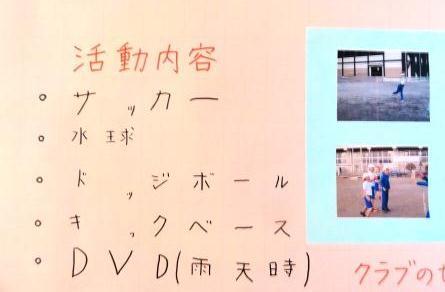 活動内容
。サッカー
。水球
。ドッジボール
。キックベース
。DVD(雨天時)
クラブの